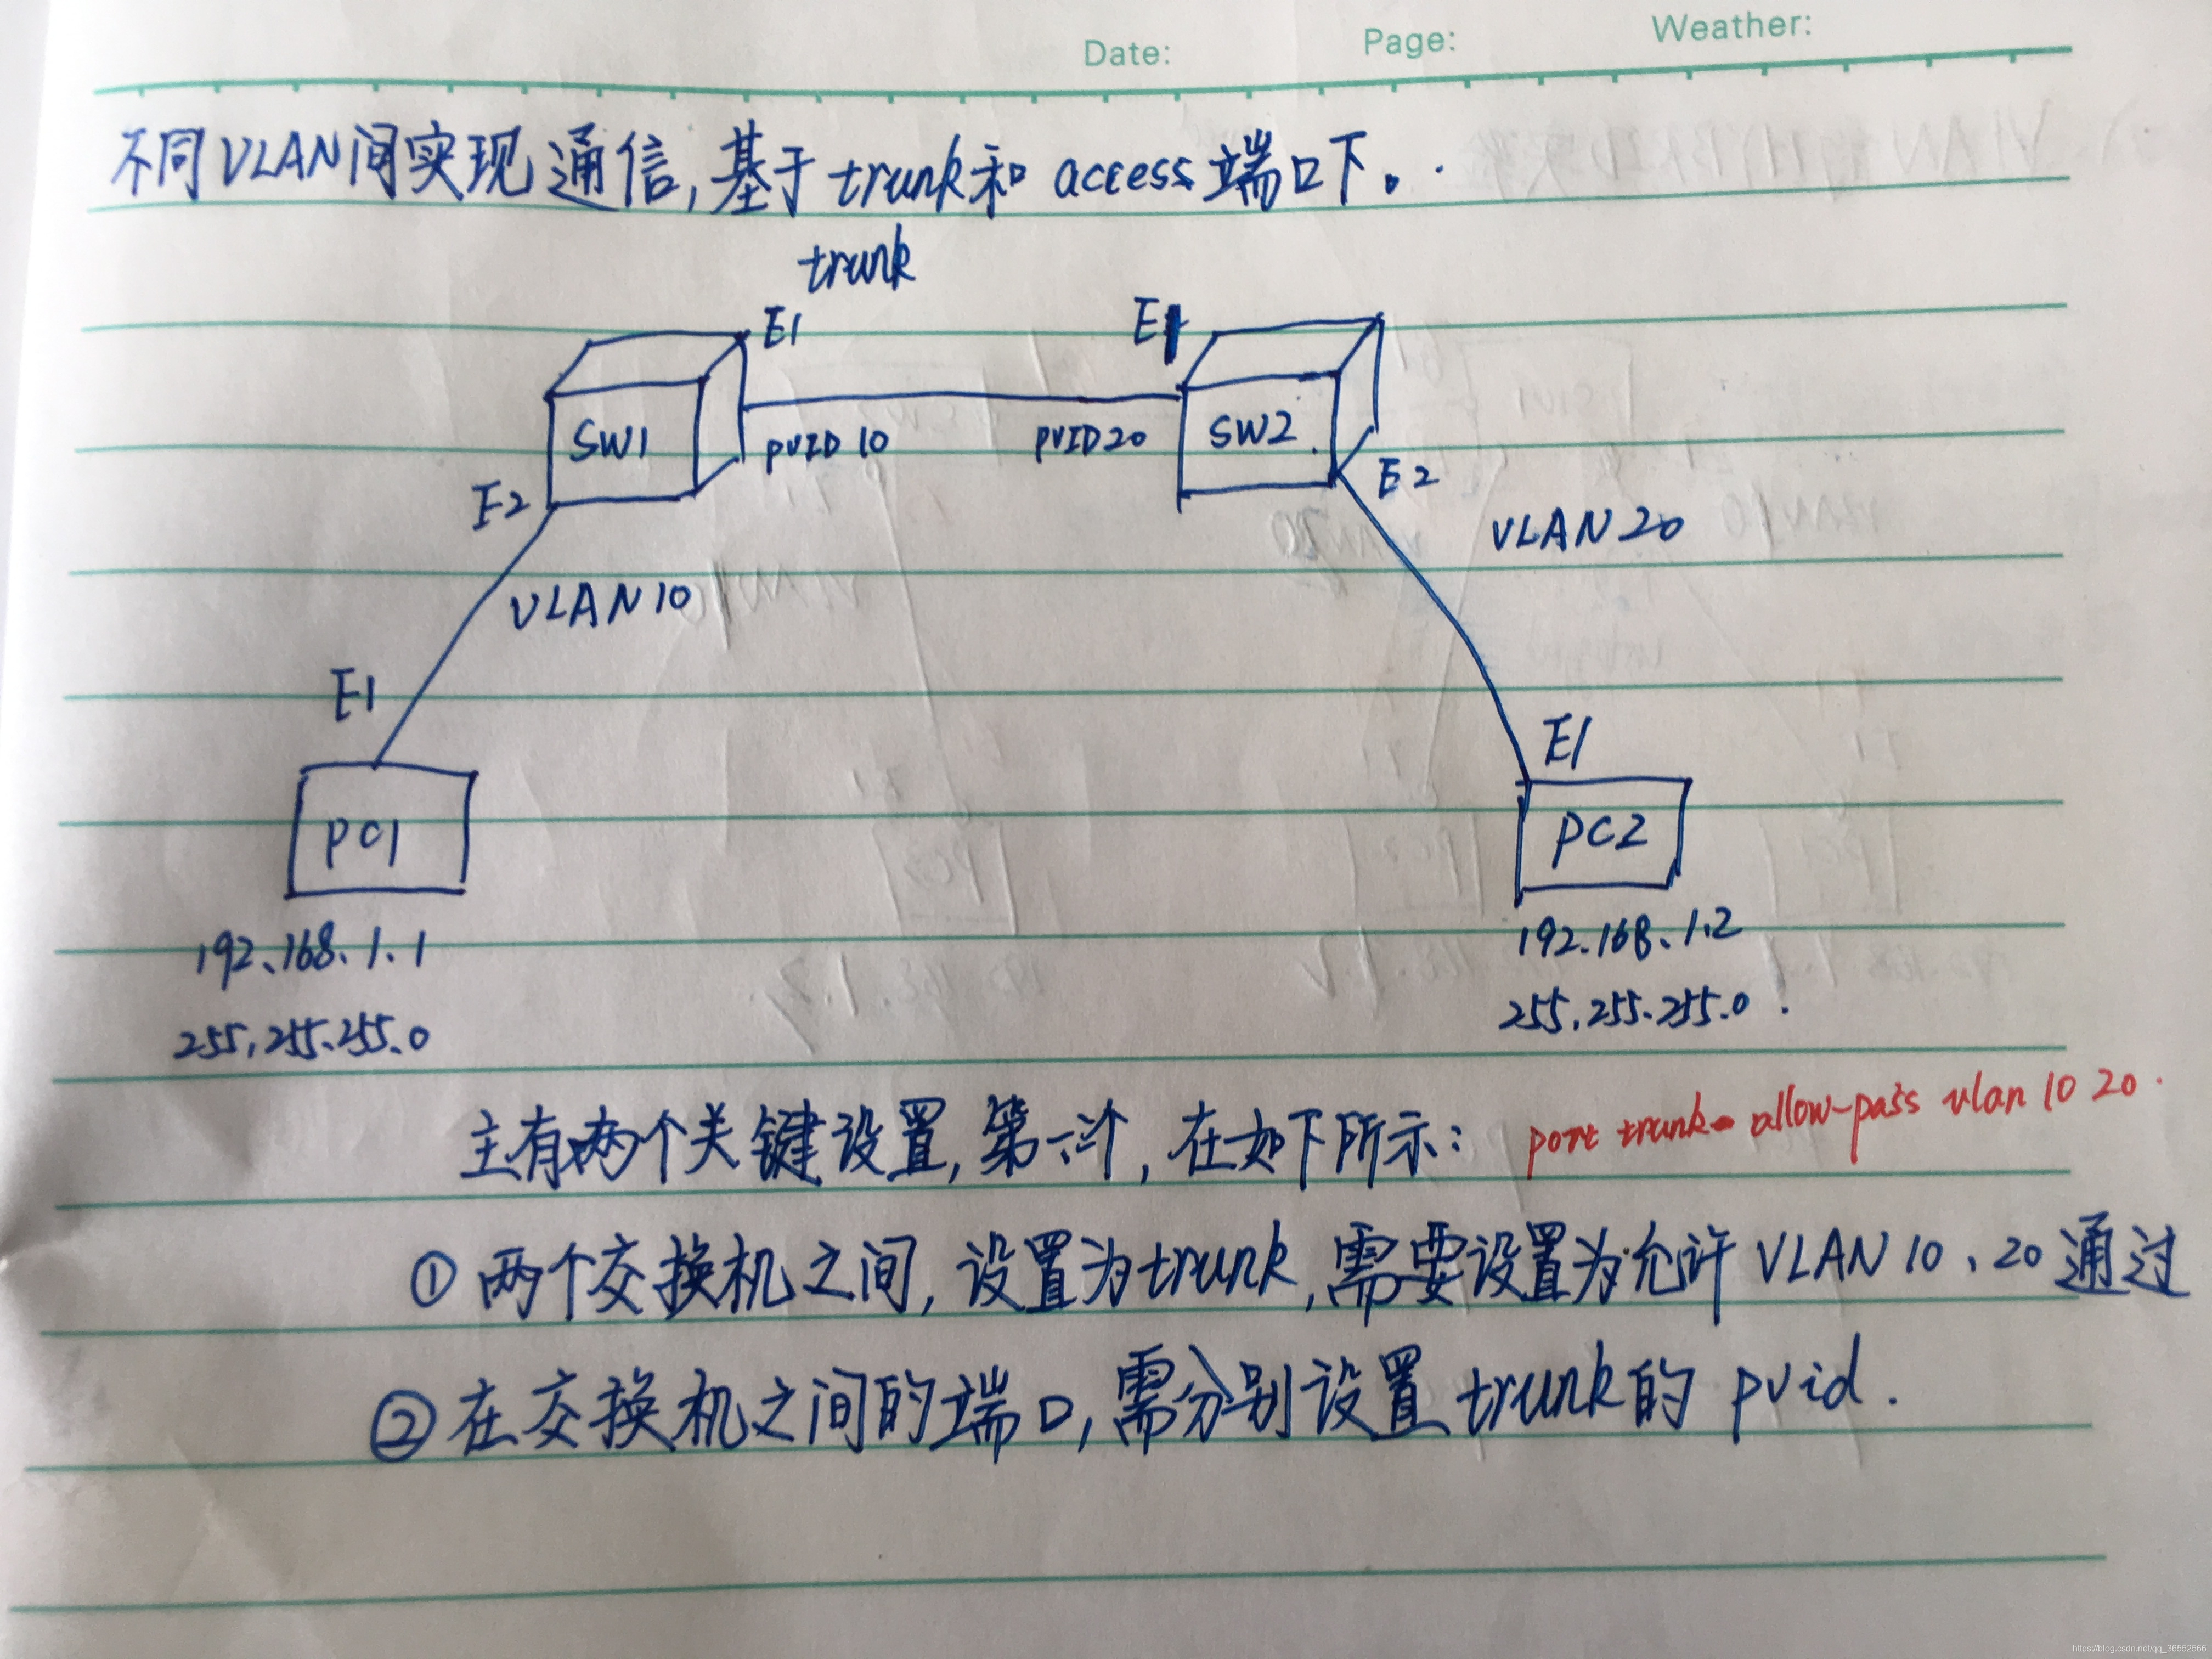 Date: Page: Weather:
不同VLAN间实现通信,基于trunk和access端口下。
trunk
E1 E1
SW1 SW2
PVID 10 PVID20
E2 E2
VLAN 20
VLAN10
E1
E1
PC1 PC2
192.168.1.1 192.168.1.2
255.255.255.0 255.255.255.0
port trunk allow-pass vlan 10 20.
主有两个关键设置,第 个,在如下所示:
①两个交换机之间,设置为trunk,需要设置为允许VLAN 10、20通过
②在交换机之间的端口,需分别设置trunk的pvid.
https://blog.csdn.net/qq_36552566